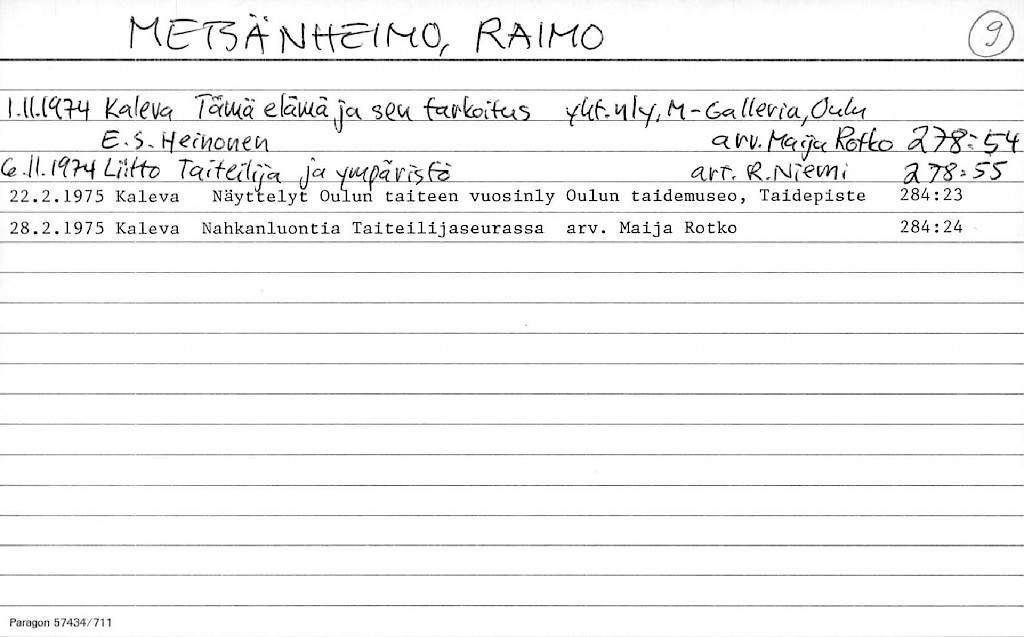 METSÄNHEIMO, RAIMO 9
1.11.1974 Kaleva Tämä elämä ja sen tarkoitus yht.nly, M-Galleria, Oulu
E.S. Heinonen arv. Maija Rotko 278:54
6.11.1974 Liitto Taiteilija ja ympäristö art. R.Niemi 278:55
22.2.1975 Kaleva Näyttelyt Oulun taiteen vuosinly Oulun taidemuseo, Taidepiste 284:23
28.2.1975 Kaleva Nahkanluontia Taiteilijaseurassa arv. Maija Rotko 284:24
Paragon 57434/711